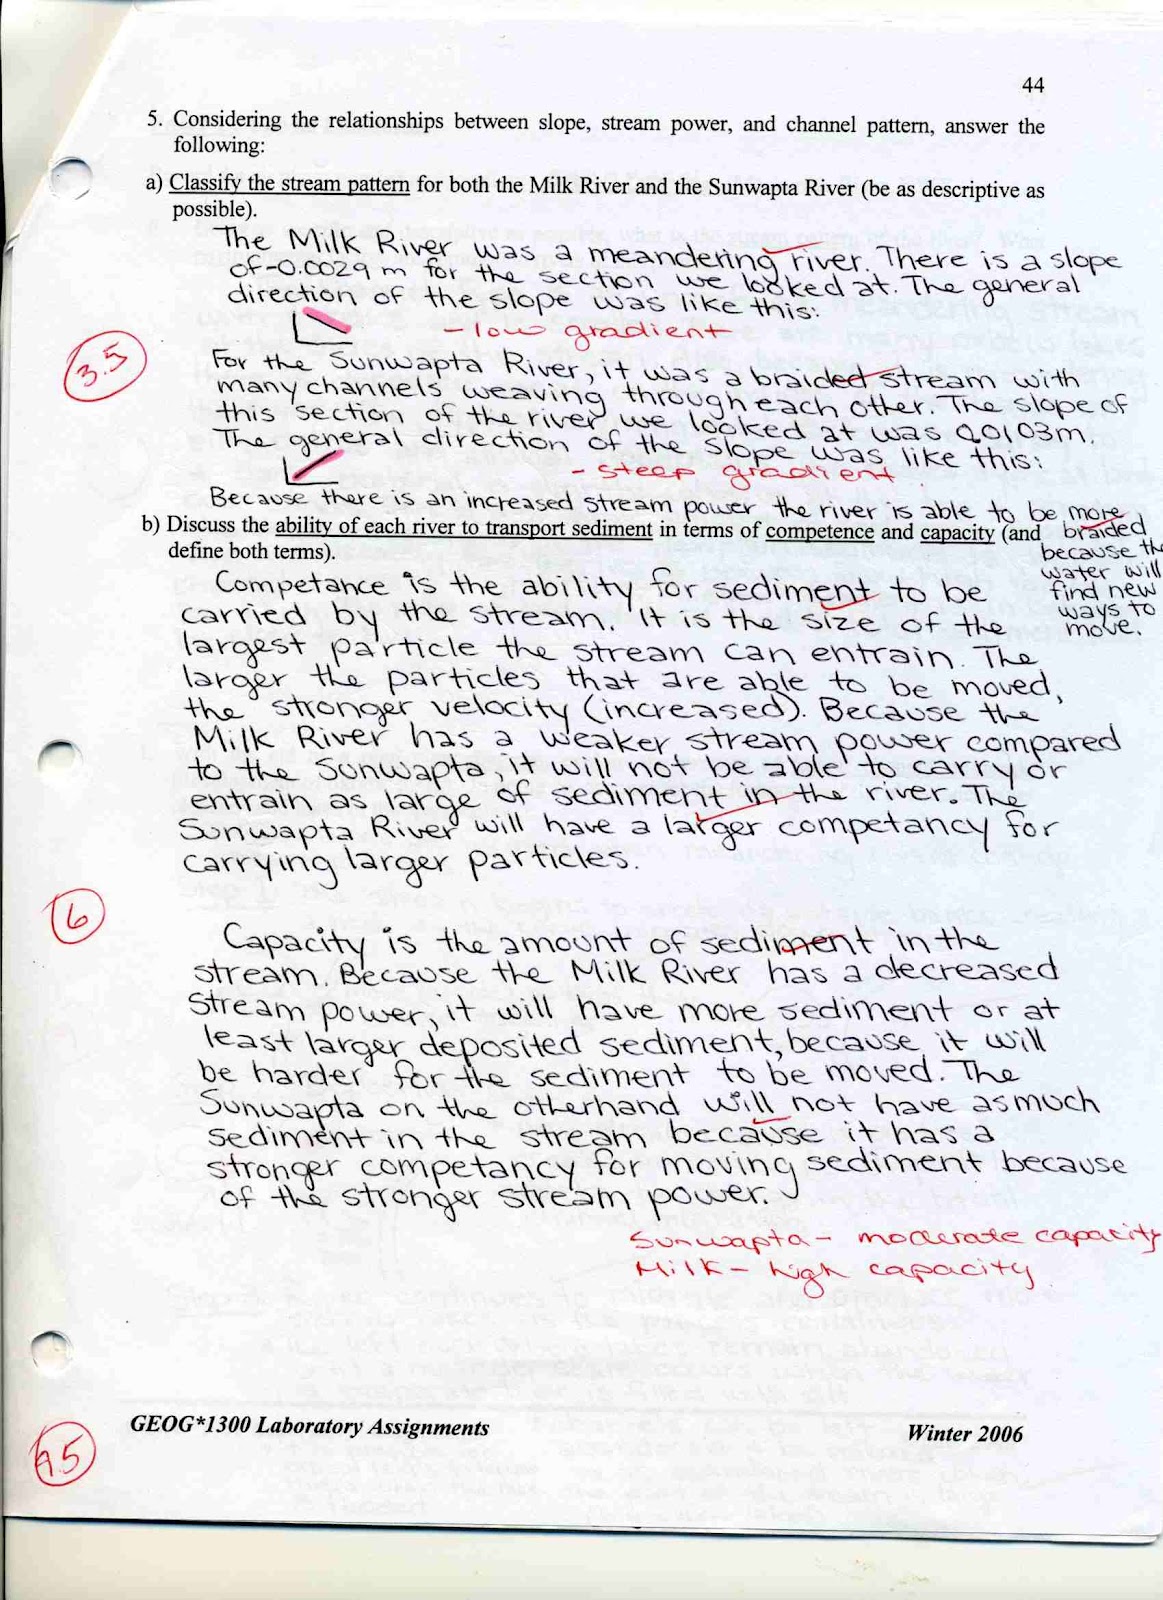 44
5. Considering the relationships between slope, stream power, and channel pattern, answer the
following:
a) Classify the stream pattern for both the Milk River and the Sunwapta River (be as descriptive as
possible).
The Milk River was a meandering river. There is a slope
of -0.0029 m for the section we looked at. The general
direction of the slope was like this:
- low gradient
3.5
For the Sunwapta River, it was a braided stream with
many channels weaving through each other. The slope of
this section of the river we looked at was 0.0103m.
The general direction of the slope was like this:
- steep gradient
Because there is an increased stream power the river is able to be more
braided
because the
water will
find new
ways to
move.
b) Discuss the ability of each river to transport sediment in terms of competence and capacity (and
define both terms).
Competance is the ability for sediment to be
carried by the stream. It is the size of the
largest particle the stream can entrain. The
larger the particles that are able to be moved,
the stronger velocity (increased). Because the
Milk River has a weaker stream power compared
to the Sunwapta, it will not be able to carry or
entrain as large of sediment in the river. The
Sunwapta River will have a larger competancy for
carrying larger particles.
6
Capacity is the amount of sediment in the
stream. Because the Milk River has a decreased
stream power, it will have more sediment or at
least larger deposited sediment, because it will
be harder for the sediment to be moved. The
Sunwapta on the otherhand will not have as much
sediment in the stream because it has a
stronger competancy for moving sediment because
of the stronger stream power.
Sunwapta - moderate capacity
Milk - high capacity
GEOG*1300 Laboratory Assignments
Winter 2006
9.5